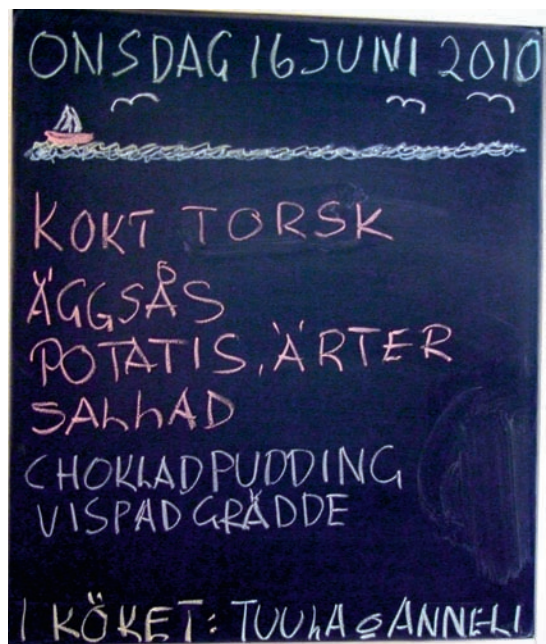 ONSDAG 16 JUNI 2010
KOKT TORSK
ÄGGSÅS
POTATIS, ÄRTER
SALLAD
CHOKLADPUDDING
VISPAD GRÄDDE
I KÖKET: TUULA & ANNELI